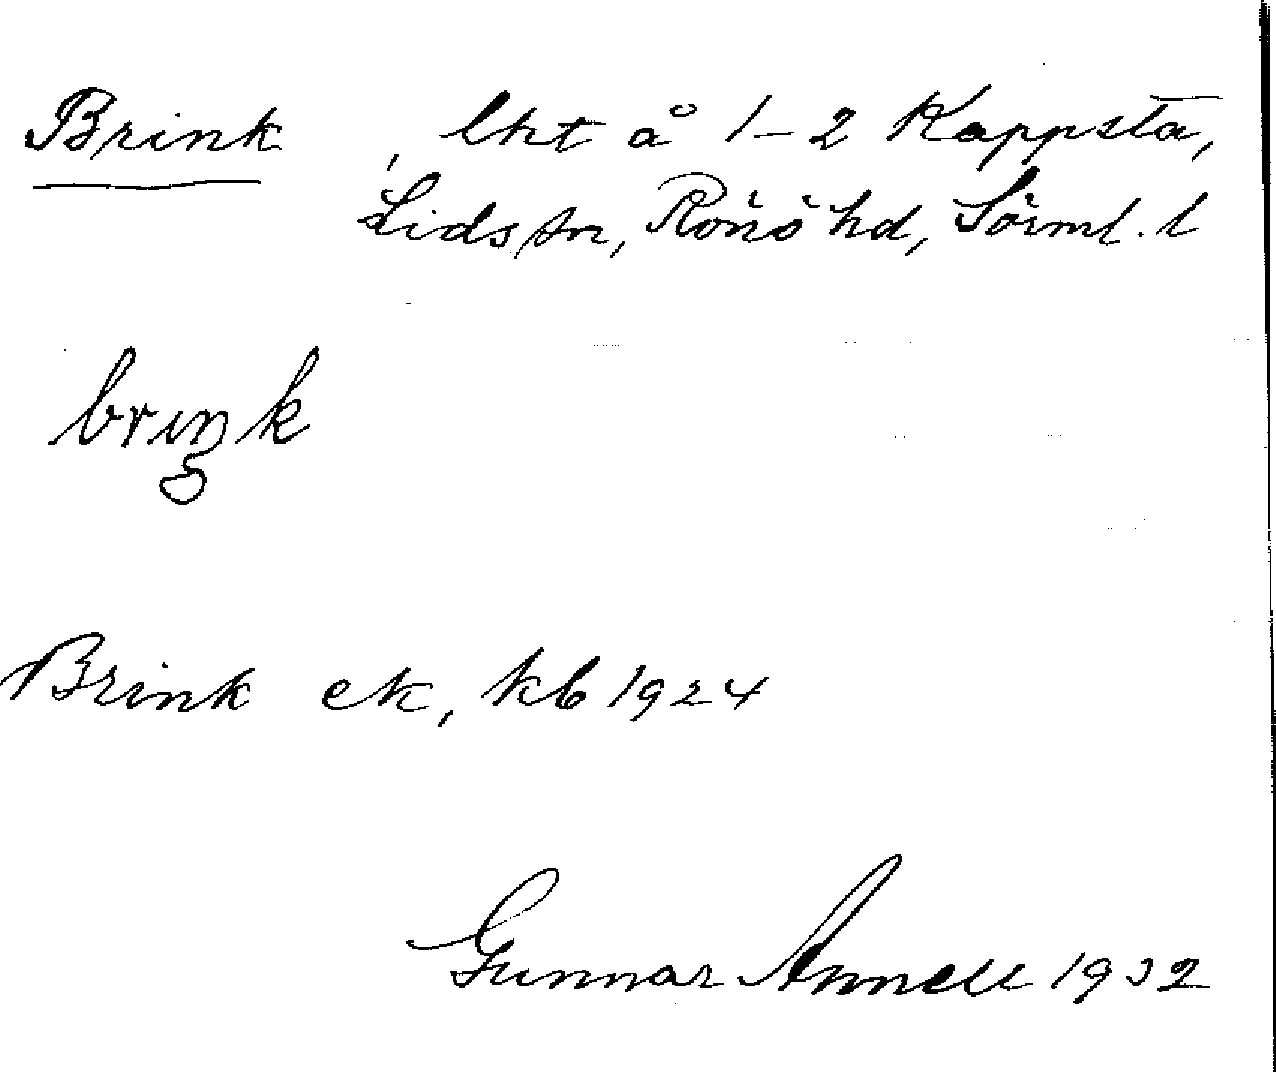 Brink, lht å 1-2 Kappsta,
Lids sn, Rönö hd, Sörml. l
briŋk
Brink ek, kb 1924
Gunnar Annell 1932